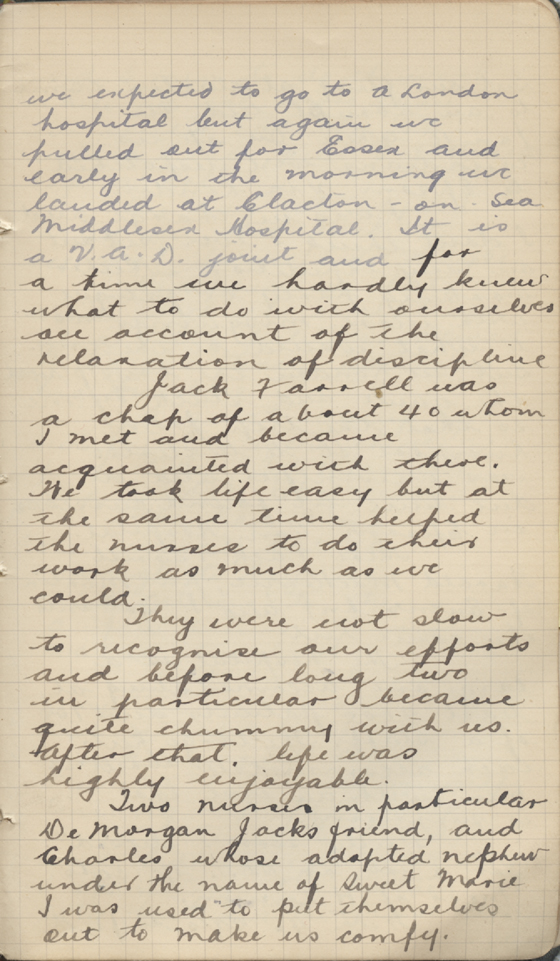 we expected to go to a London
hospital but again we
pulled out for Essex and
early in the morning we
landed at Clacton - on - Sea
Middlesex Hospital. It is
a V.A.D. joint and for
a time we hardly knew
what to do with ourselves
on account of the
relaxation of discipline
Jack Farrell was
a chap of about 40 whom
I met and became
acquainted with there.
We took life easy but at
the same time helped
the nurses to do their
work as much as we
could.
They were not slow
to recognise our efforts
and before long two
in particular became
quite chummy with us.
After that, life was
highly enjoyable.
Two nurses in particular
De Morgan Jacks friend, and
Charles whose adopted nephew
under the name of Sweet Marie
I was used to put themselves
out to make us comfy.